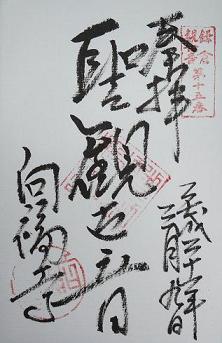 鎌倉
観音
第十五番
奉拝
平成二十年
月九日
聖観世音
向福寺